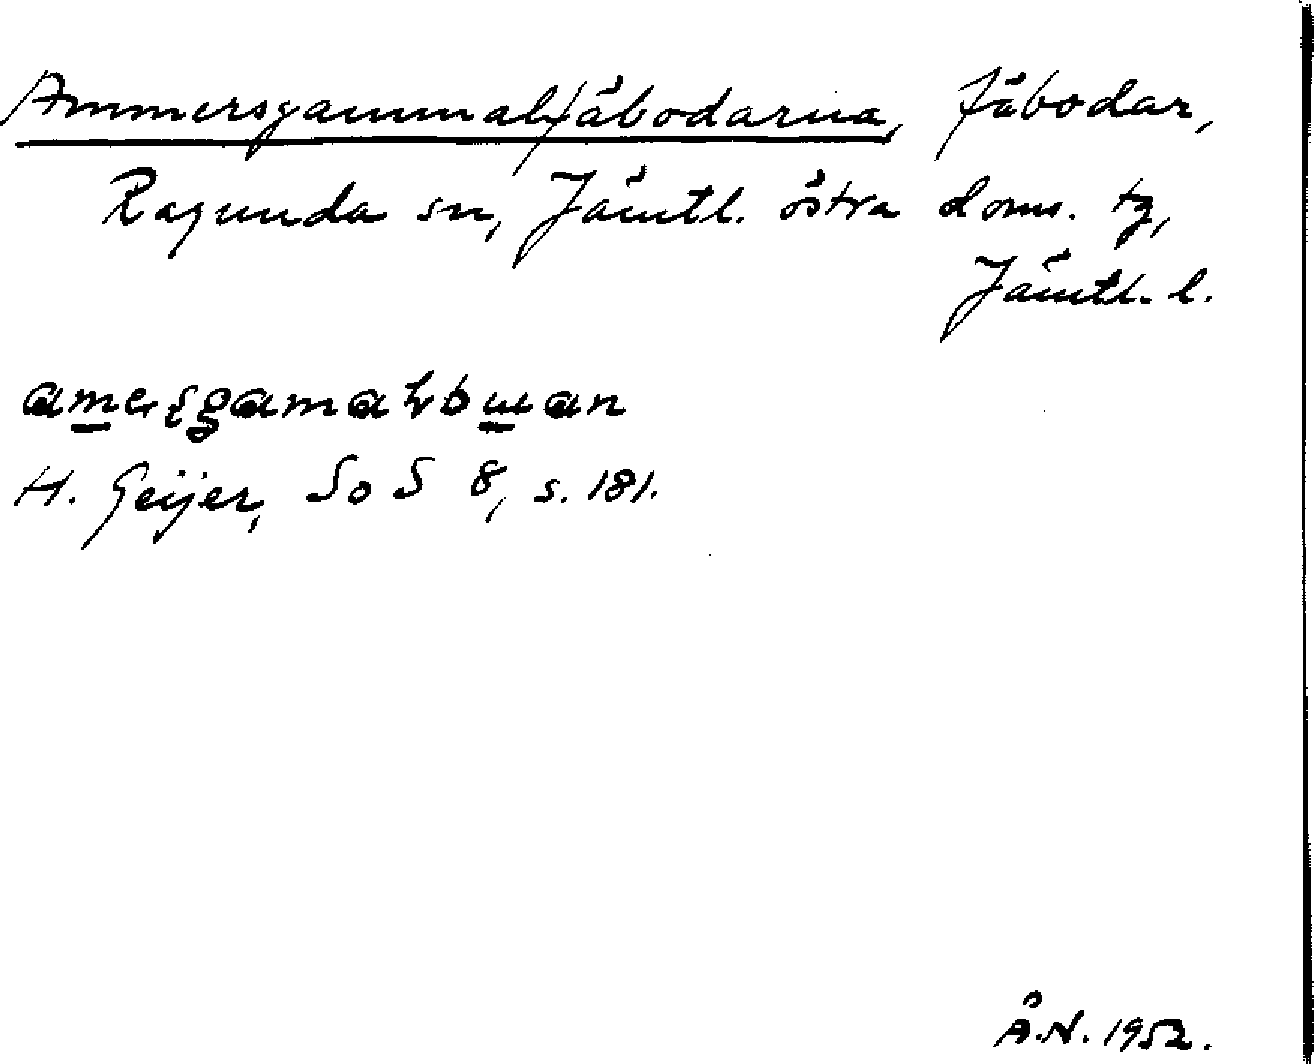 Ammersgammalfäbodarna, fäbodar,
Ragunda sn, Jämtl. östra doms. tg,
Jämtl. l.
H. Geijer, SoS 8, s. 181.
Å.N. 1952.